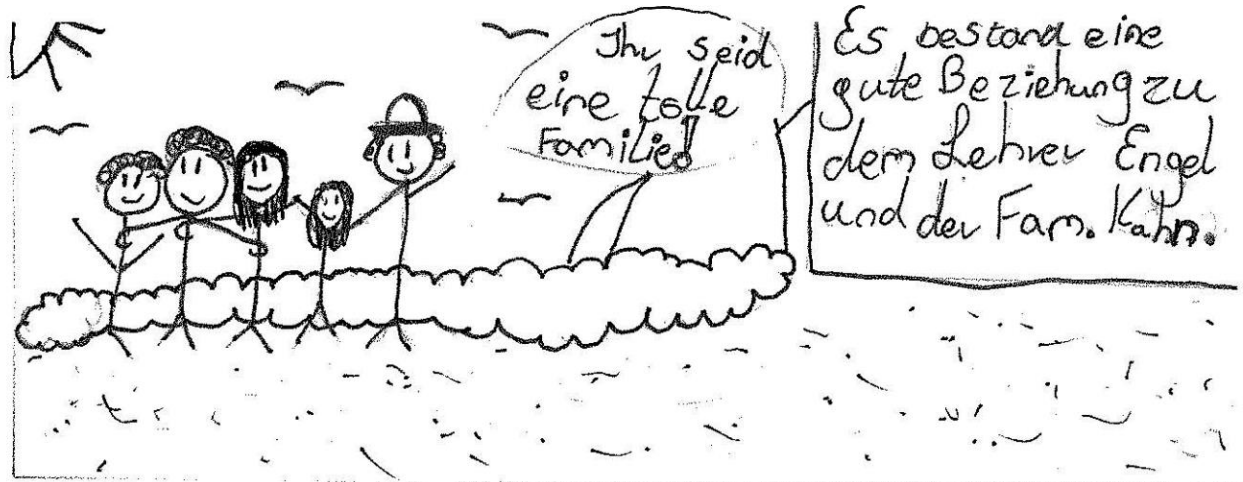 Ihr seid
eine tolle
Familie!
Es bestand eine
gute Beziehung zu
dem Lehrer Engel
und der Fam. Kahn.